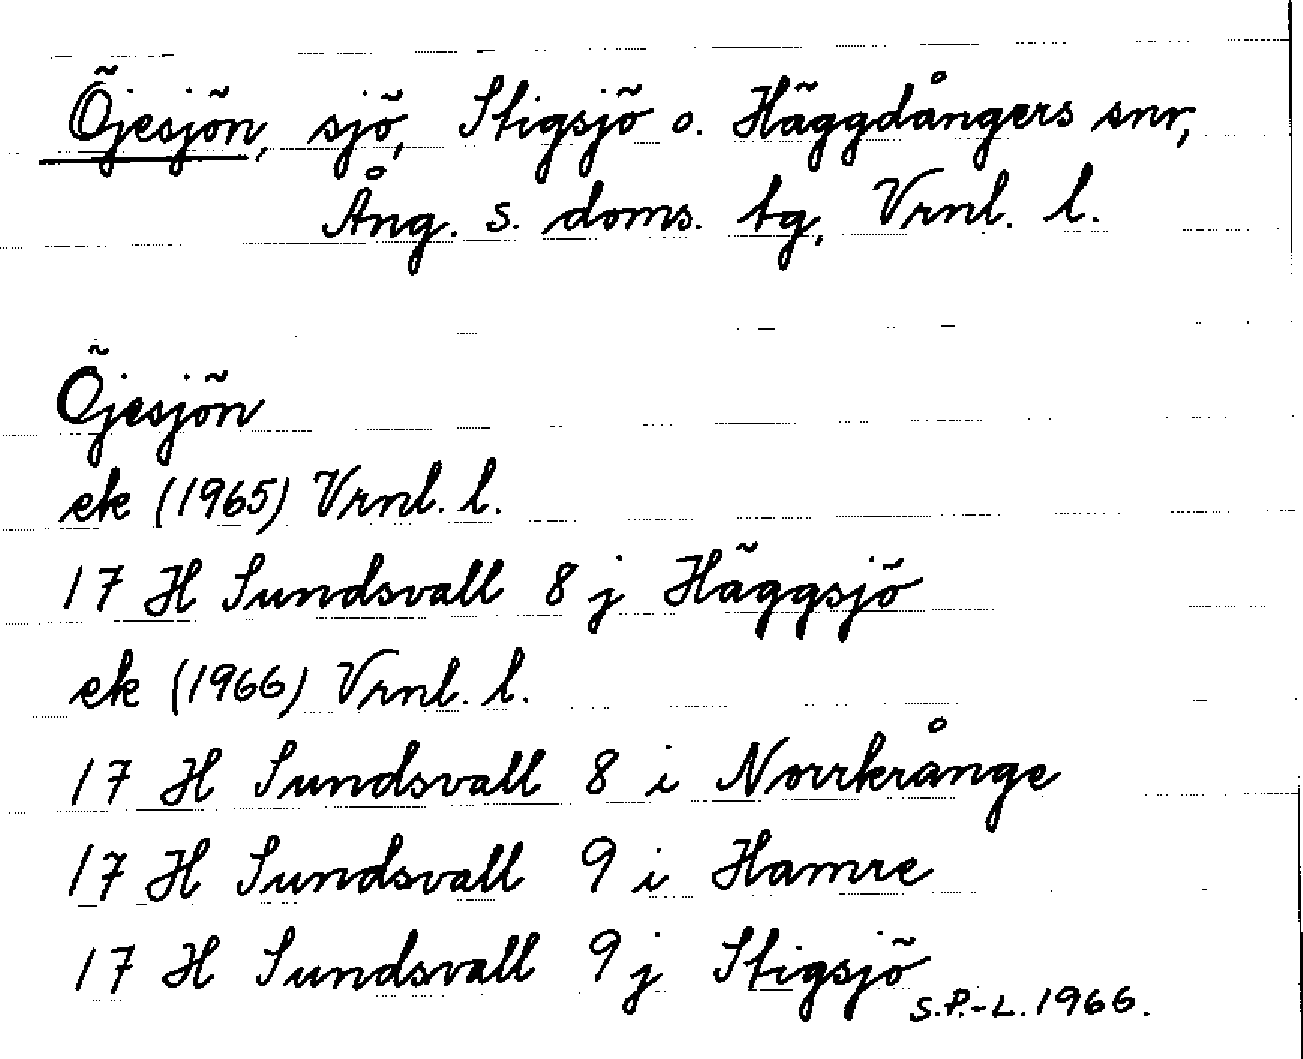 Öjesjön, sjö, Stigsjö o. Häggdångers snr,
Ång. s. doms. tg, Vrnl. l.
Öjesjön
ek (1965) Vrnl. l.
17 H Sundsvall 8 j Häggsjö
ek (1966) Vrnl. l.
17 H Sundsvall 8 i Norrkrånge
17 H Sundsvall 9 i Hamre
17 H Sundsvall 9 j Stigsjö
S.P.-L. 1966.